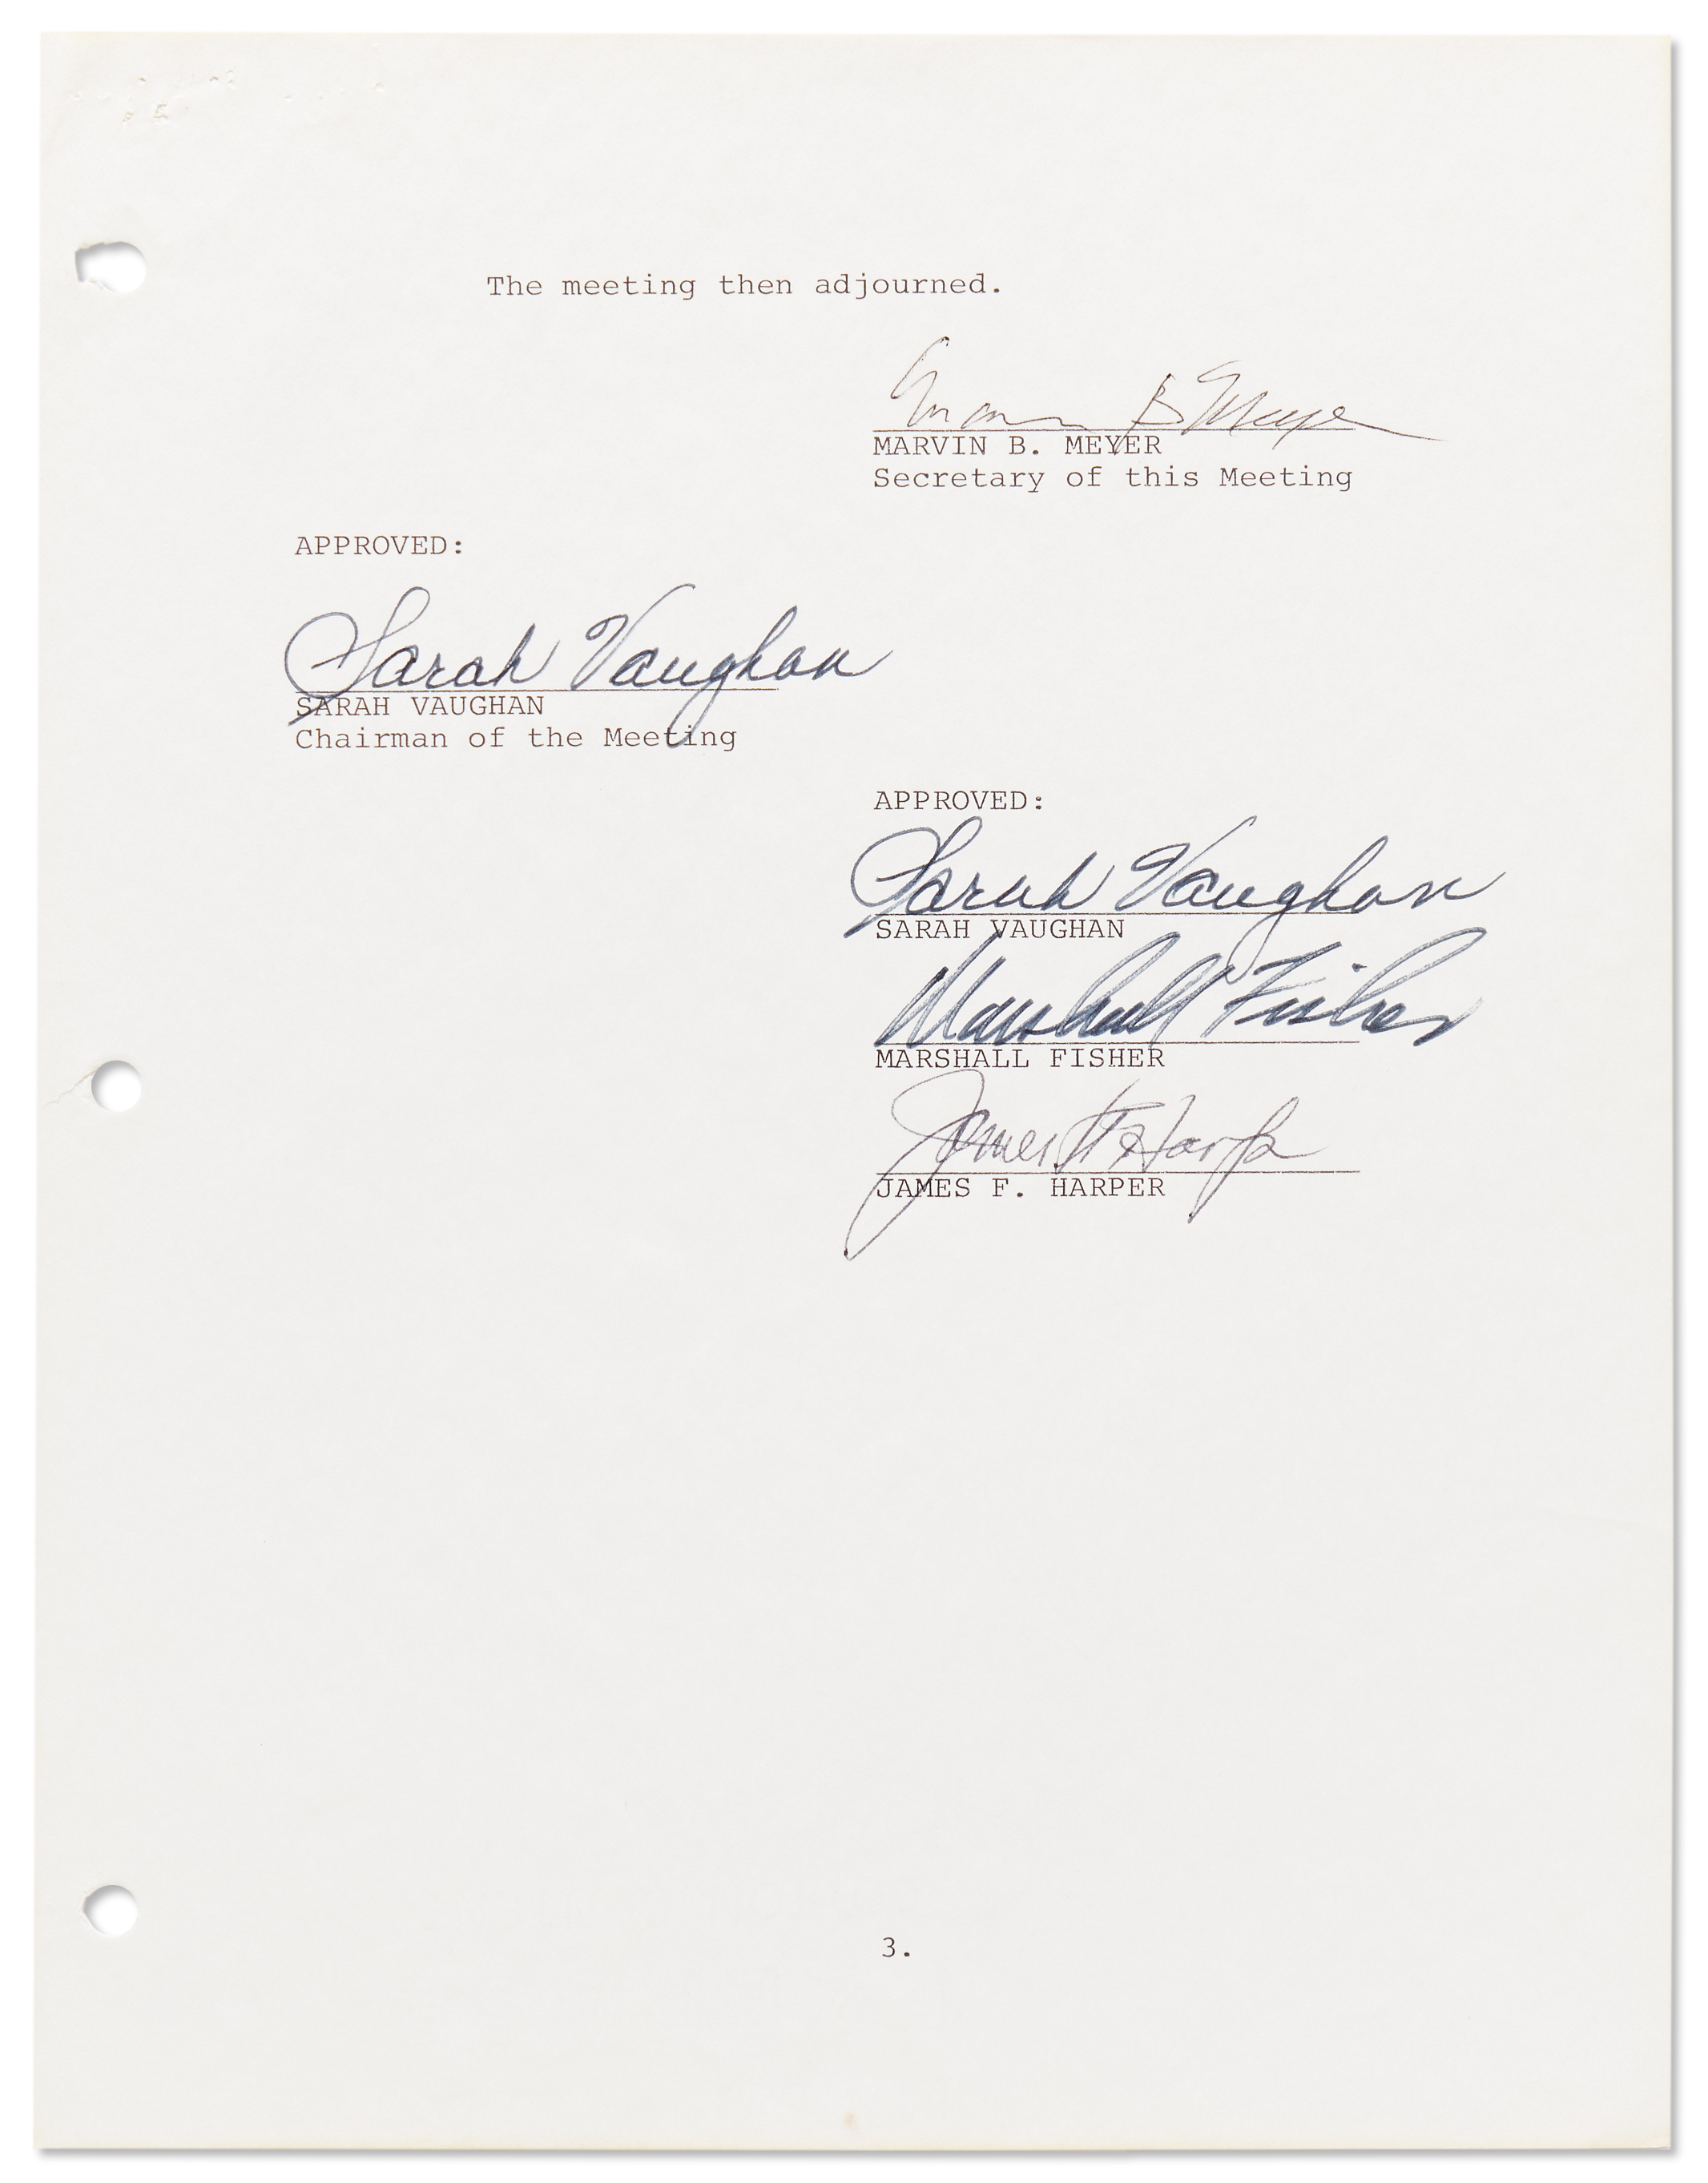 The meeting then adjourned.
Marvin B Meyer
MARVIN B. MEYER
Secretary of this Meeting
APPROVED:
Sarah Vaughan
SARAH VAUGHAN
Chairman of the Meeting
APPROVED:
Sarah Vaughan
SARAH VAUGHAN
Marshall Fisher
MARSHALL FISHER
James F Harper
JAMES F. HARPER
3.